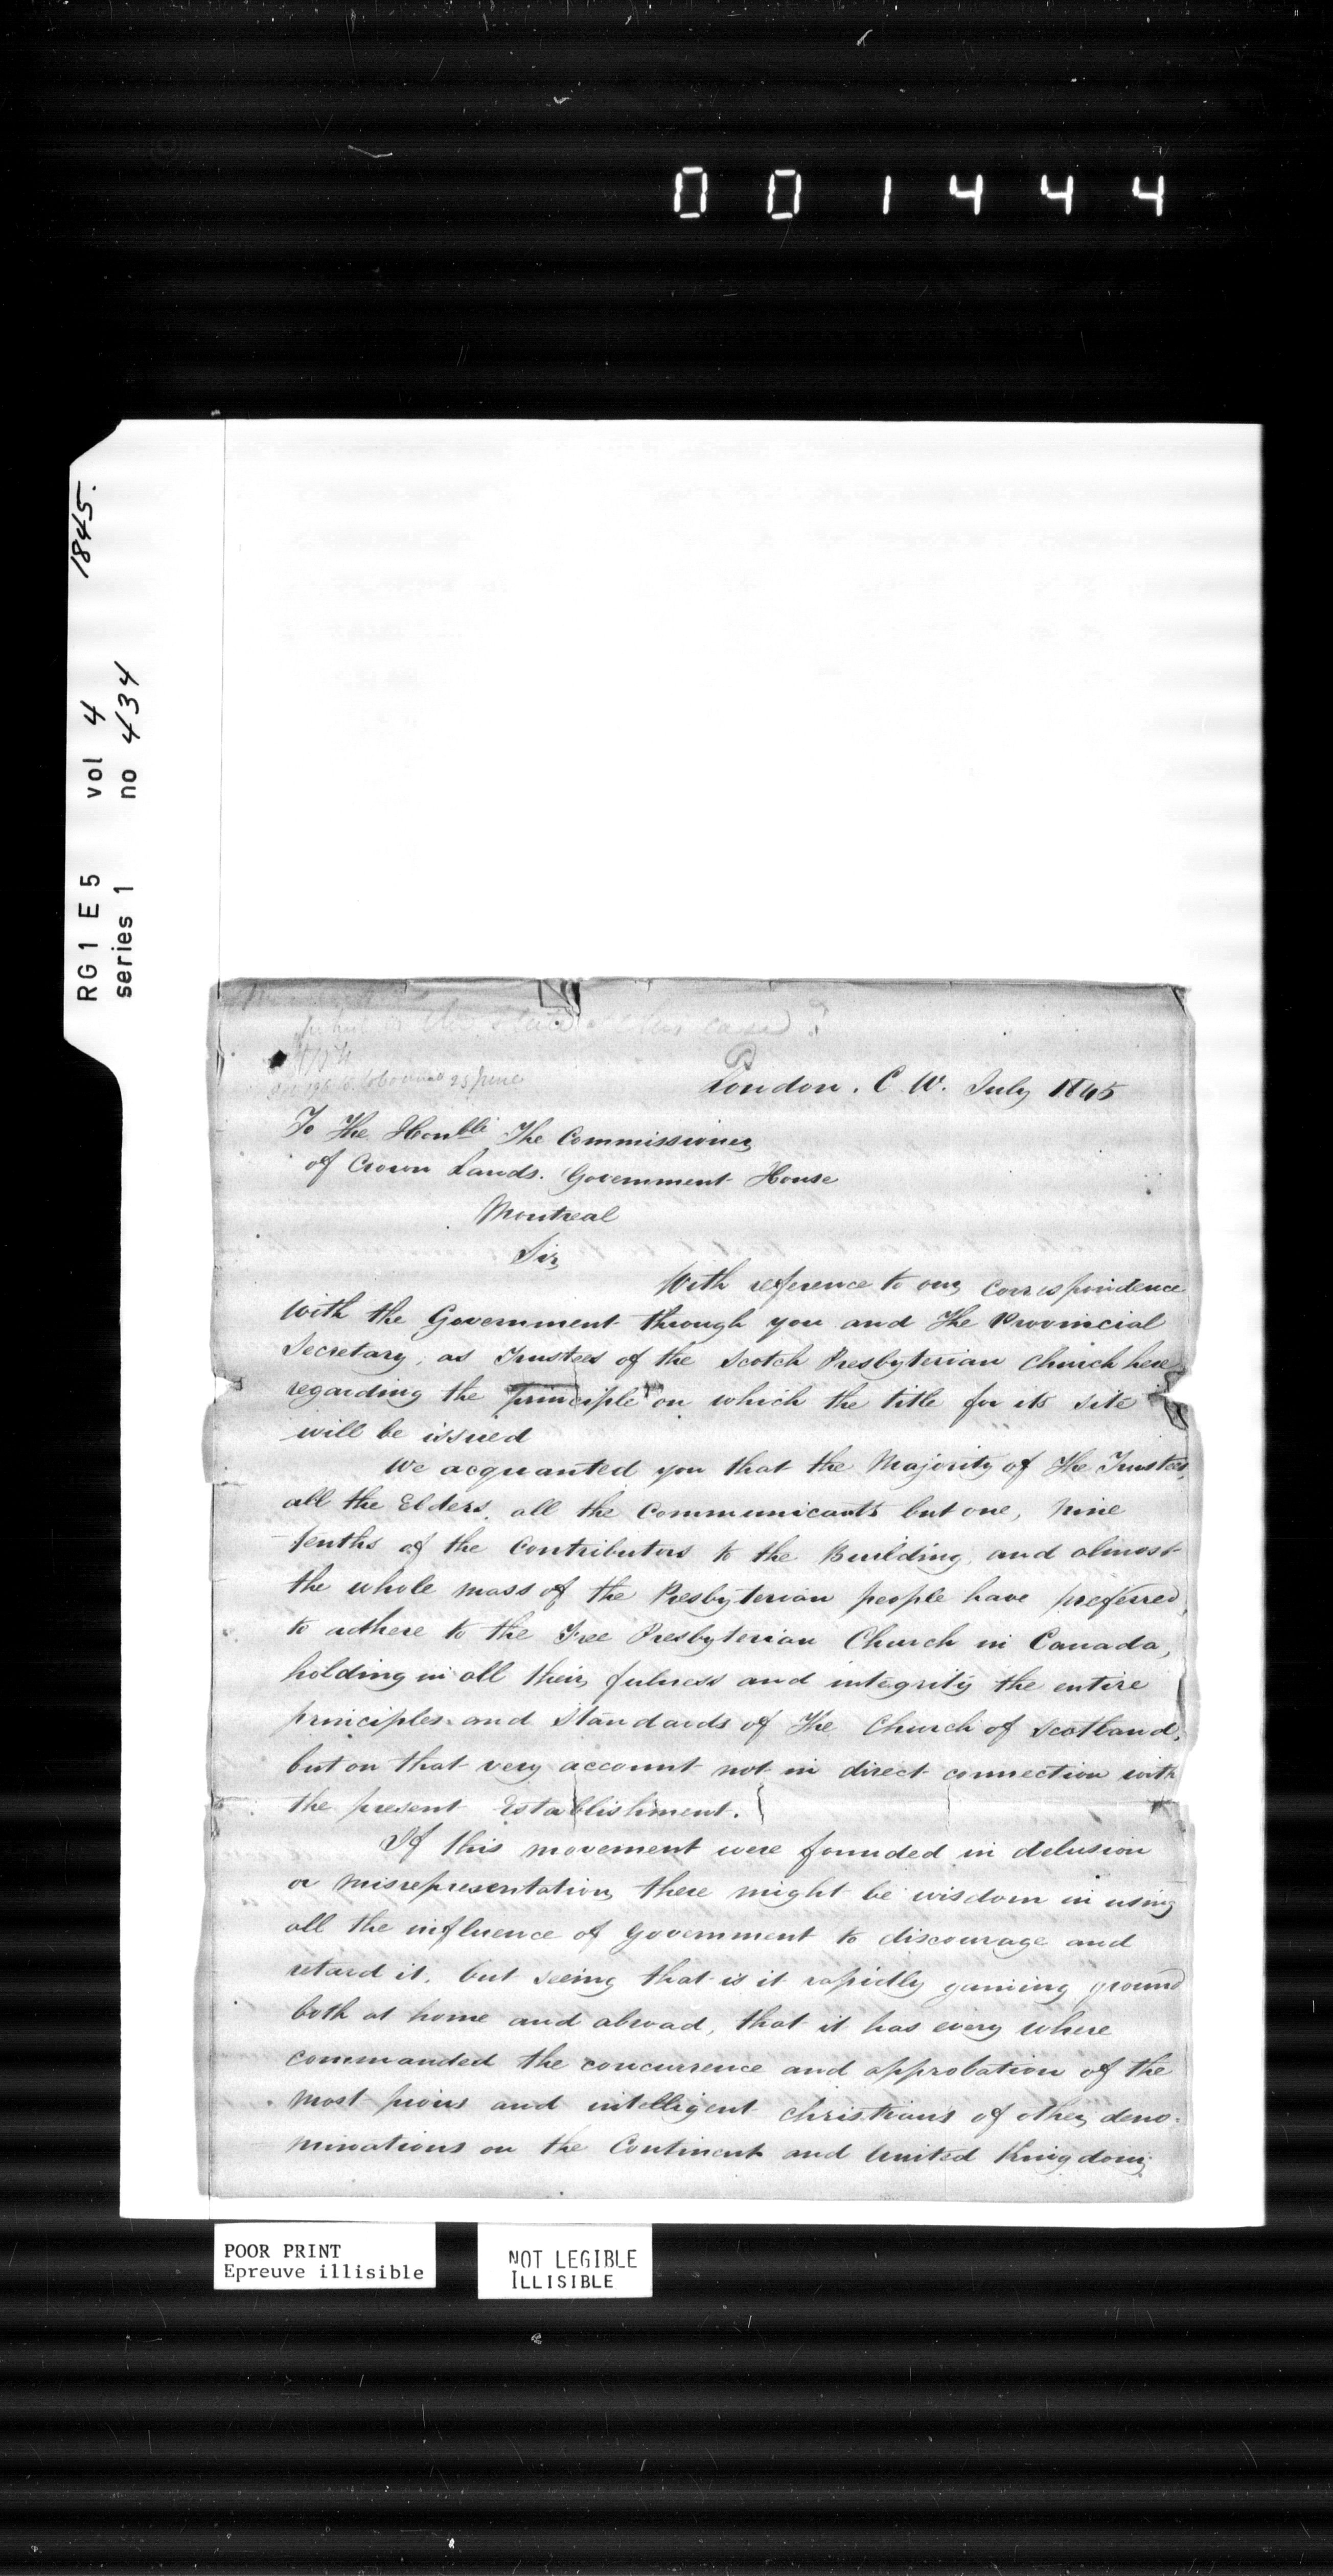 001444
1845.
RG1 E5 vol 4
series 1 no 434
what is the state of this case?
25 June
London. C. W. July 1845
To The Honble The Commissioner
of Crown Lands. Government House
Montreal
Sir
With reference to our correspondence
with the Government through you and The Provincial
Secretary, as Trustees of the Scotch Presbyterian Church here
regarding the principle on which the title for its site
will be issued
We acquanted you that the Majority of The Trustees,
all the Elders, all the Communicants but one, nine
tenths of the Contributors to the Building, and almost
the whole mass of the Presbyterian people have preferred,
to adhere to the Free Presbyterian Church in Canada,
holding in all their fulness and integrity the entire
principles and Standards of The Church of Scotland,
but on that very account not in direct connection with
the present Establishment.
If this movement were founded in delusion
or misrepresentation, there might be wisdom in using
all the influence of Government to discourage and
retard it, but seeing that is it rapidly gaining ground
both at home and abroad, that it has every where
commanded the concurrence and approbation of the
most pious and intelligent christians of other deno-
minations on the Continent and United Kingdom;
POOR PRINT
Epreuve illisible
NOT LEGIBLE
ILLISIBLE